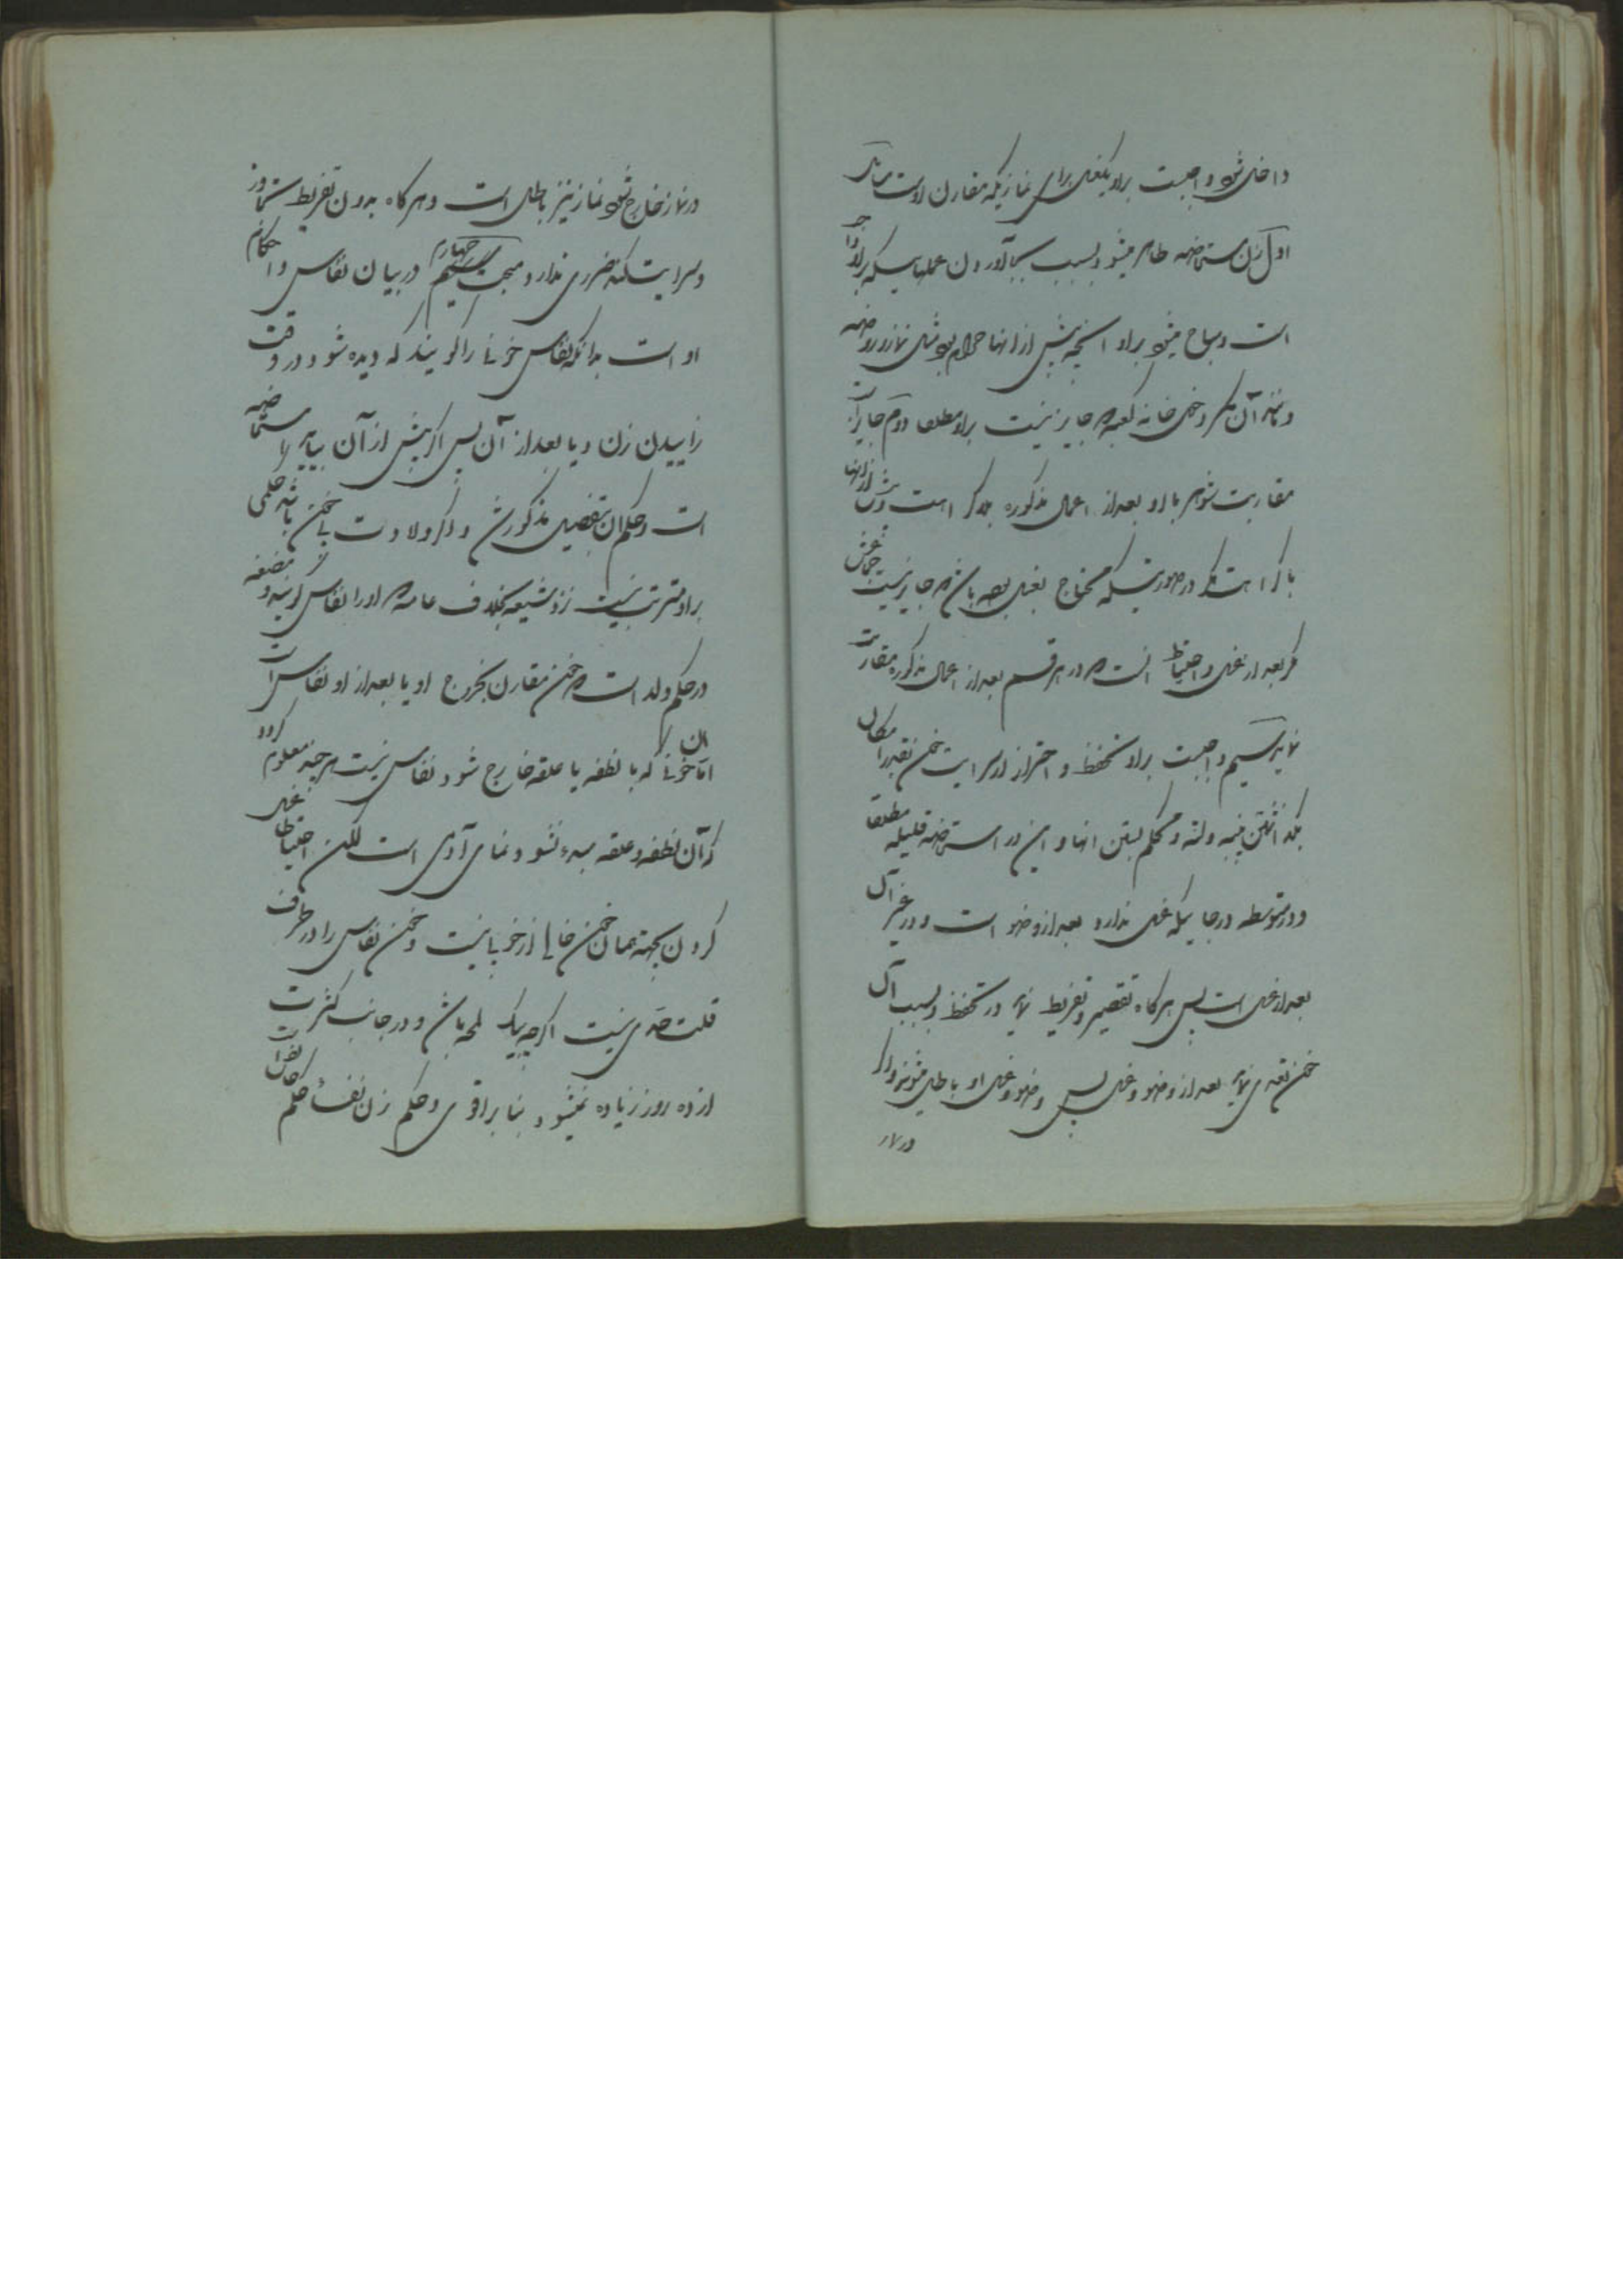 داخل شود واجبست براو یکغسل برای نمازیکه مقارن اوست
اول زن مستحاضه طاهر میشود بسبب بجا آوردن عملهاییکه براو واجب
است و مباح میشود براو آنچه پیش از اینها حرام بود مثل نماز و روزه
و مانند آن مگر دخول خانه کعبه که جایز نیست براو مطلقا دوم جایز است
مقاربت شوهر با او بعد از اعمال مذکوره بلا کراهت و پیش از اینها
با کراهت مگر در صورتیکه محتاج بغسل بوده باشد که جایز نیست جماعش
مگر بعد از غسل و احتیاط آنست که در هر قسم بعد از اعمال مذکوره مقاربت
نماید سیم واجبست براو تحفظ و احتراز از سرایت خون بقدر امکان
بگذاشتن پنبه و لته و محکم بستن آنها و این در استحاضه قلیله مطلقا
و در متوسطه در جاییکه غسل ندارد بعد از وضو است و در غیر آن
بعد از غسل است پس هرگاه تقصیر و تفریط نماید در تحفظ و بسبب آن
خون تعدی نماید بعد از وضو و غسل پس وضو و غسل او باطل میشود و اگر
در نماز
در نماز خارج شود نماز نیز باطل است و هرگاه بدون تفریط تجاوز
و سرایت کند ضرری ندارد مبحث چهارم در بیان نفاس و احکام
او است بدانکه نفاس خونی را گویند که دیده شود در وقت
زاییدن زن و یا بعد از آن پس اگر پیش از آن بیاید استحاضه
است و حکم آن بتفصیل مذکور شد و اگر ولادت بی خون باشد حکمی
براو مترتب نیست نزد شیعه بخلاف عامه که او را نفاس گویند و مضغه
در حکم ولد است که خون مقارن بخروج او یا بعد از او نفاس است
اما خونی که با نطفه یا علقه خارج شود نفاس نیست هر چند معلوم گردد
که آن نطفه و علقه مبدء نشو و نمای آدمی است لکن احتیاطا غسل
کردن بجهة همان خون خالی از خوبی نیست و خون نفاس را در طرف
قلت حدی نیست اگرچه یک لحظه باشد و در جانب کثرت
از ده روز زیاده نمیشود بنا بر اقوی و حکم زن نفسأ حکم